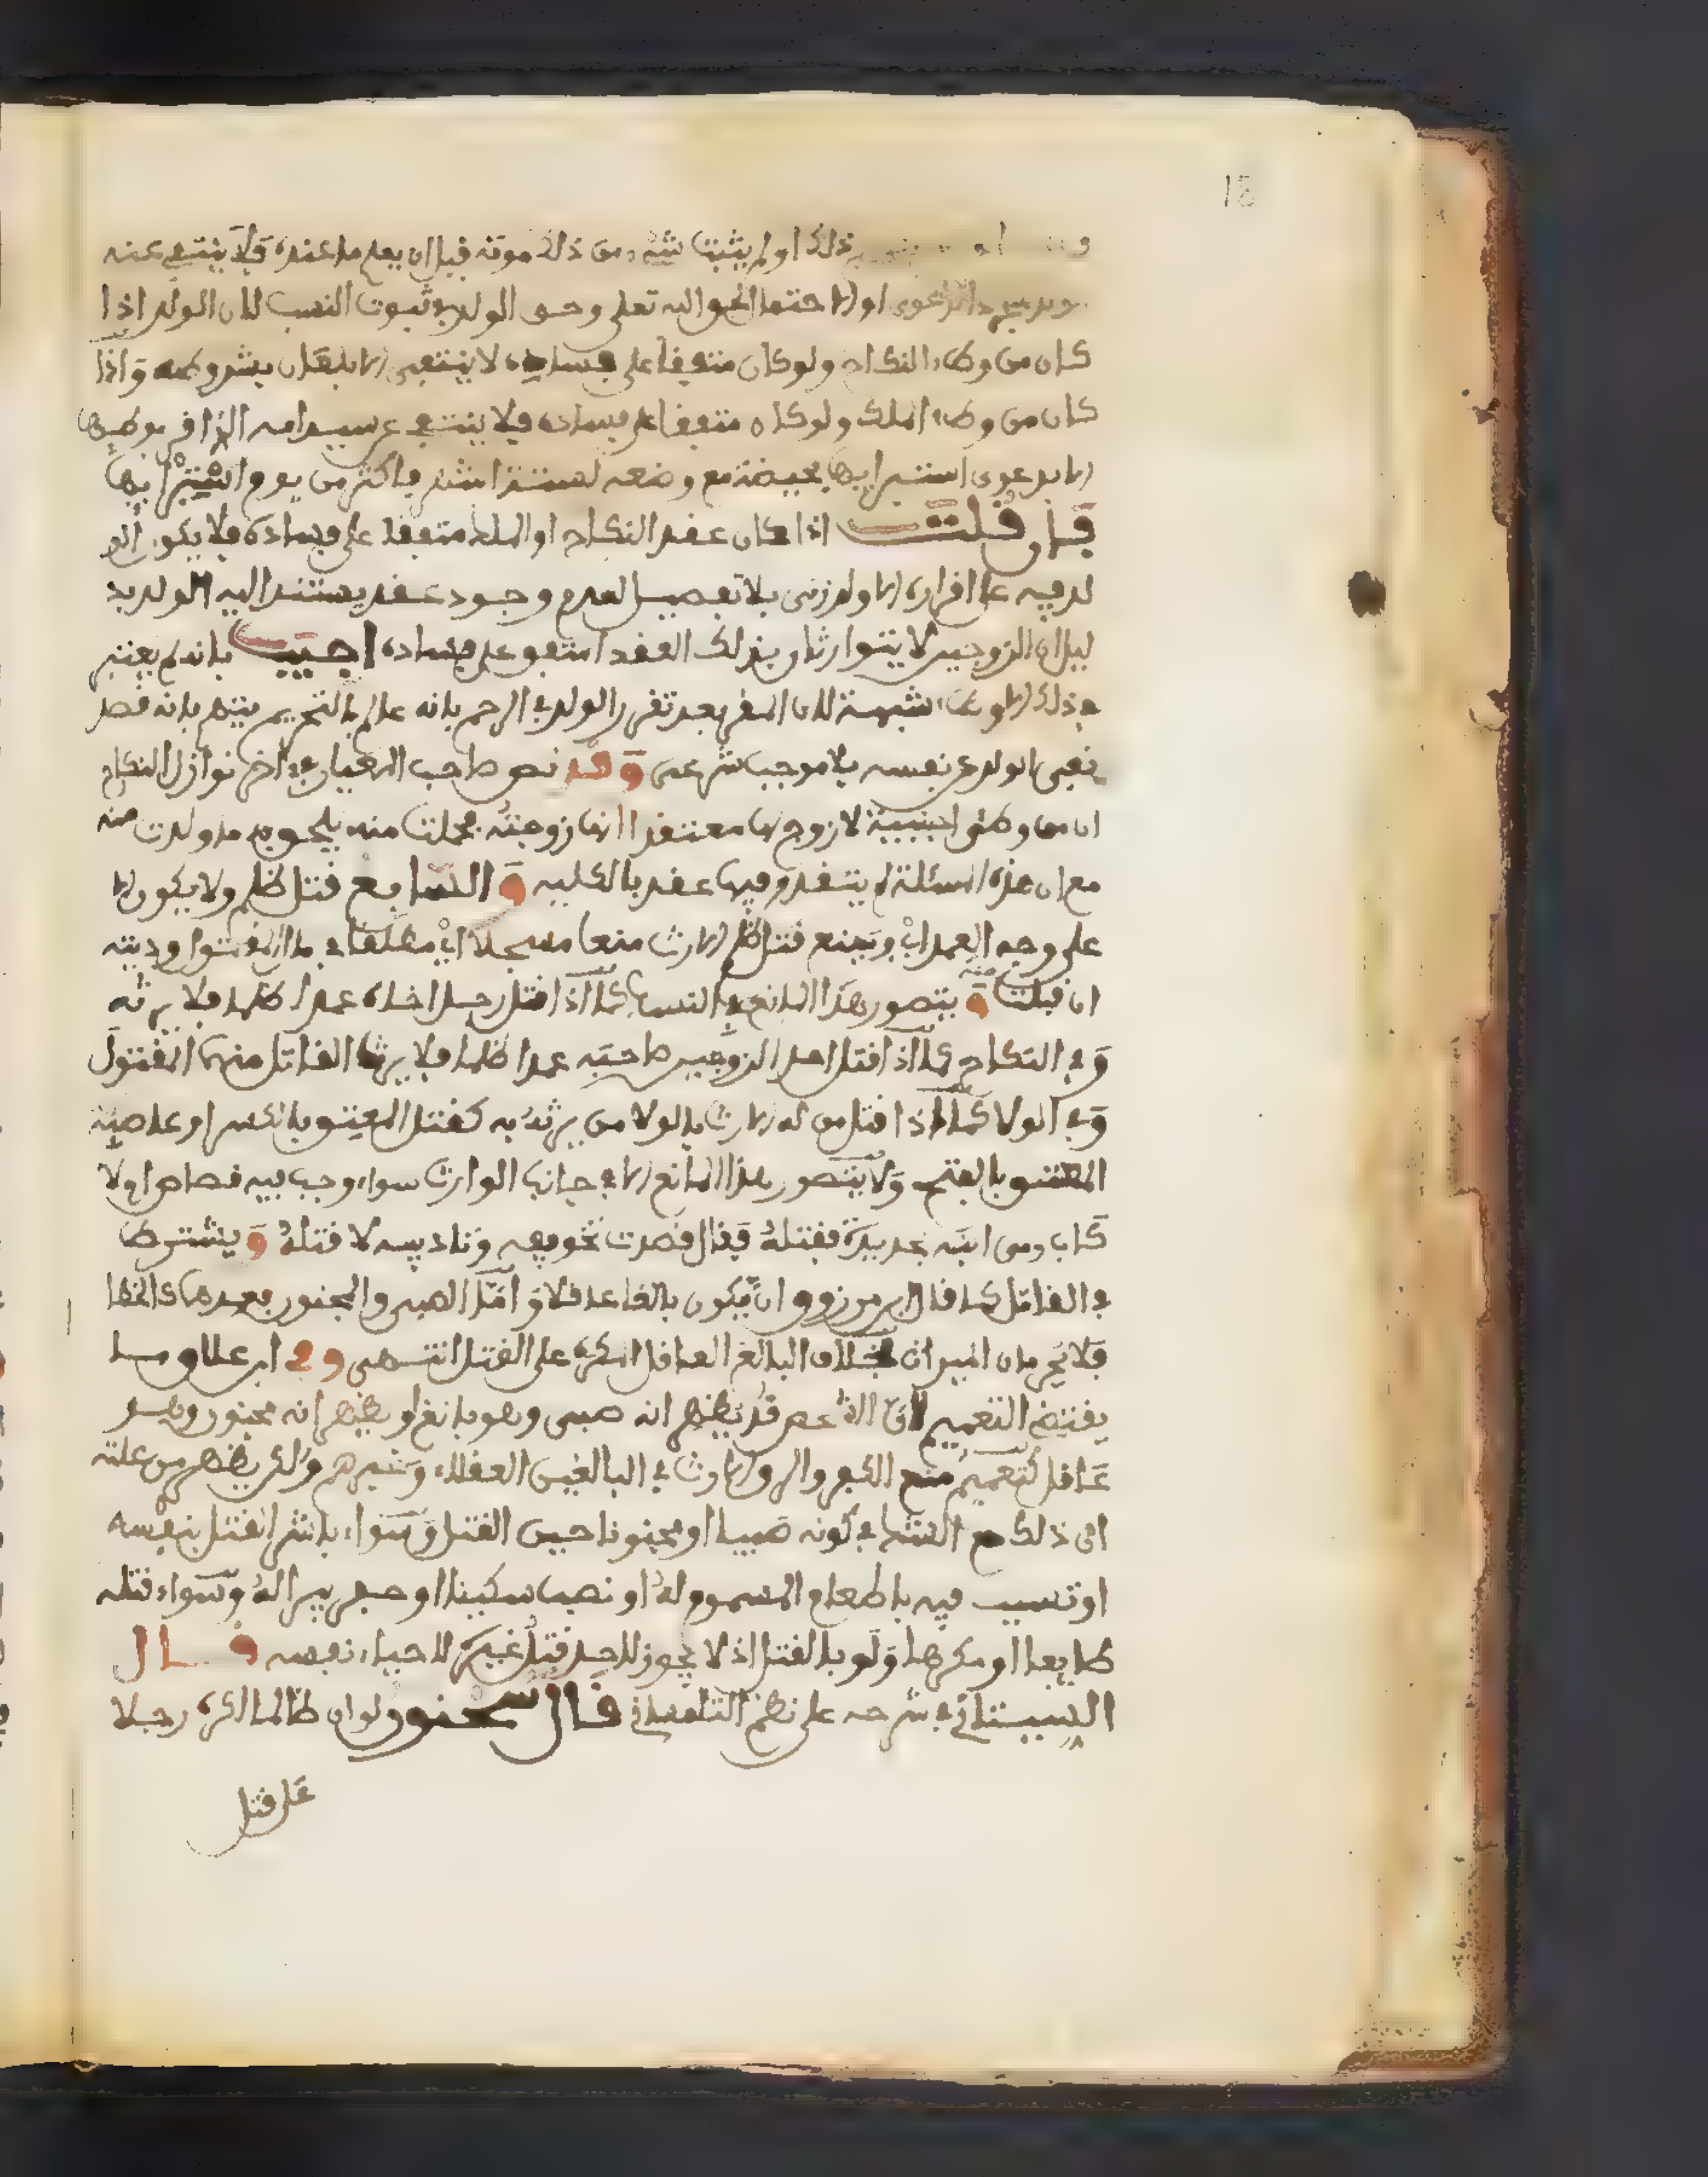 18
ذلك او لم يثبت شيء ومن ذلك موته قبل ان يعلم ما عنده فلا ينتفي عنه
الدعوى اولا حتما لحق الله تعلى وحق الولد في ثبوت النسب لان الولد اذا
كان من وطء النكاح ولو كان متفقا على فساده لا ينتفي الا بلعان بشروطه وَاذا
كان من وطء الملك ولو كان متفقا على فساده فلا ينتفي عن سيد امه المقر بوطئها
الا بدعوى استبرايها بحيضة مع وضعه لستة اشهر فاكثر من يوم استبرايها
فان قلت اذا كان عقد النكاح او الملك متفقا على فساده فلا يكون
لدفيه على اقراره الا ولد زنى بلا تفصيل لعدم وجود عقد يستند اليه الولد بد
ليل ان الزوجين لا يتوارثان بذلك العقد المتفق على فساده اجيب بانه لم يعتبر
في ذلك الا وطء شبهة لان المقر بعد تقرر الولد في الرحم بانه عالم بالتحريم يتهم بانه قصد
نفي الولد عن نفسه بلا موجب شرعي وَقد نص صاحب المعيار في اخر نوازل النكاح
ان من وطئ اجنبية لا زوج لها معتقدا انها زوجته فحملت منه يلحق به ما ولدت منه
مع ان هذه المسئلة لم يتقدم فيها عقد بالكلية وَ السابع قتل ظلم ولا يكون الا
على وجه العمد اي ويمنع قتل ظلم الارث منعا مسجلا اي مطلقا في مال المقتول وديته
ان قبلت منه وَ يتصور هذا المانع في النسب كما اذا قتل رجل اخاه عمدا ظلما فلا يرثه
وَفي النكاح كما اذا قتل احد الزوجين صاحبه عمدا ظلما فلا يرث القاتل منهما المقتول
وَفي الولا كما اذا قتل من له الارث بالولا من يرثه به كقتل المعتق بالكسر او عاصبه
المعتق بالفتح وَلا يتصور هذا المانع الا في جانب الوارث سواء وجب فيه قصاص اولا
كاب رمى ابنه بحديدة فقتله فقال قصدت تخويفه وتاديبه لا قتله وَ يشترط
في القاتل كما قال ابن مرزوق ان يكون بالغا عاقلا وَ امّا الصبي والمجنون فعمدهما كالخطا
فلا يحرمان الميراث بخلاف البالغ العاقل المكره على القتل انتهى وفي ابن علاق ما
يقتضي التعميم لان الشخص قد يظهر انه صبي وهو بالغ او يظهر انه مجنون وهو
عَاقل كتعميم منع الكفر والرق الارث في البالغين العقلاء وَغيرهم والذي يظهر من علته
اى ذلك مع الشك في كونه صبيا او مجنونا حين القتل وَسواء باشر القتل بنفسه
او تسبب فيه باطعام المسموم له او نصب سكينا او حفر بير اله وَسواء قتله
طايعا او مكرها وَلو بالقتل اذ لا يجوز لاحد قتل غيره لاحياء نفسه قال
السيتاني في شرحه على نظم التلمساني قال سحنون لو ان ظالما اكره رجلا
على قتل